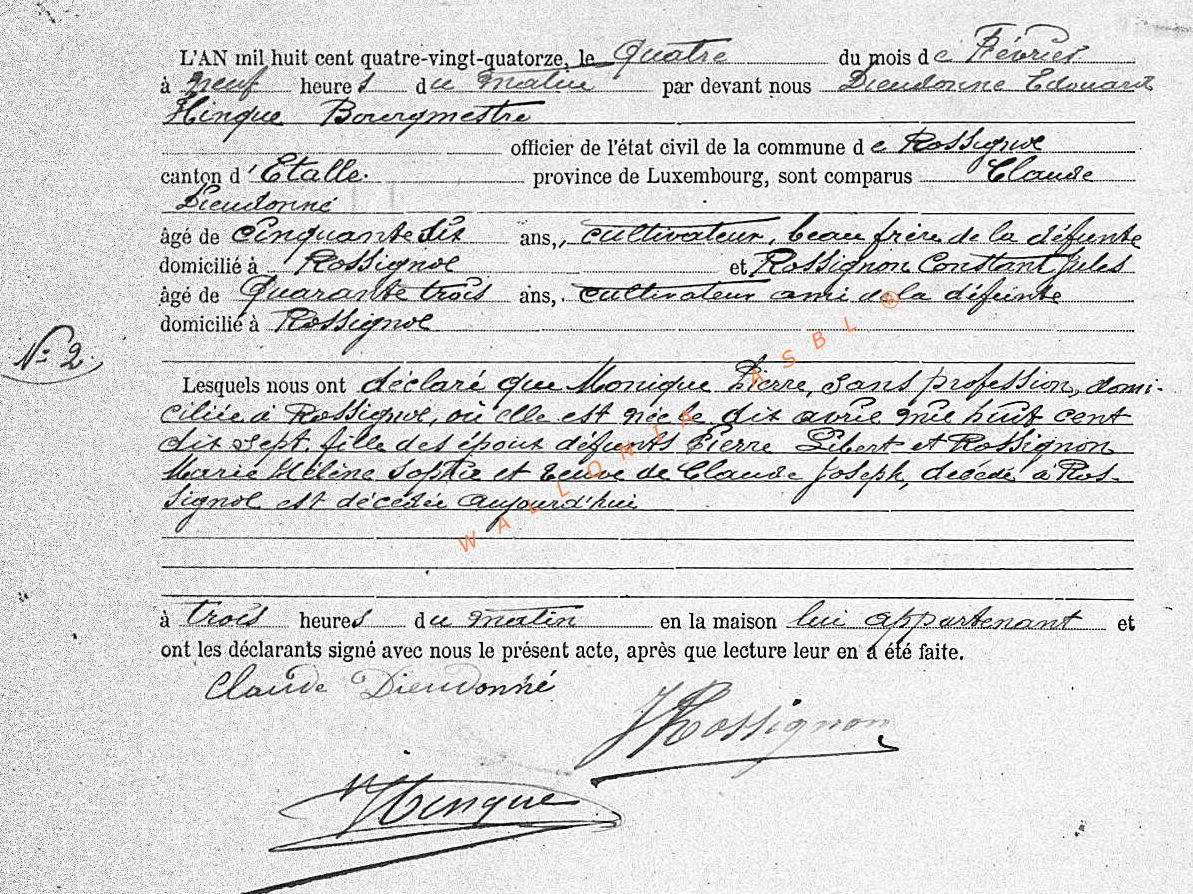 L'AN mil huit cent quatre-vingt-quatorze, le Quatre du mois de Février
à neuf heures du matin par devant nous Dieudonné Edouard
Hinque Bourgmestre
officier de l'état civil de la commune de Rossignol
canton d'Etalle. province de Luxembourg, sont comparus Claude
Dieudonné
âgé de cinquante six ans, cultivateur, beau frère de la défunte
domicilié à Rossignol et Rossignon Constant Jules
âgé de Quarante trois ans, cultivateur ami de la défunte
domicilié à Rossignol
N° 2.
Lesquels nous ont déclaré que Monique Pierre, sans profession, domi-
ciliée à Rossignol, où elle est née le dix avril mil huit cent
dix sept, fille des époux défunts Pierre Gibert et Rossignon
Marie Hélène Sophie et veuve de Claude Joseph, décédé à Ros-
signol est décédée aujourd'hui
à trois heures du matin en la maison lui appartenant et
ont les déclarants signé avec nous le présent acte, après que lecture leur en a été faite.
Claude Dieudonné
J Rossignon
Hinque
WALLONIA ASBL ®